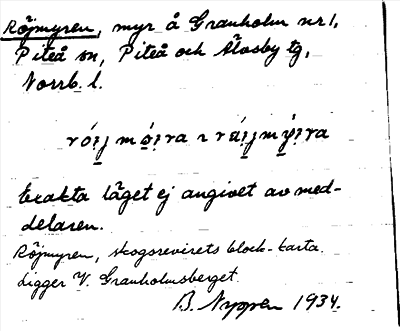 Röjmyren, myr å Granholm nr 1,
Piteå sn, Piteå och Älvsby tg,
Norrb. l.
Exakta läget ej angivet av med-
delaren.
Röjmyren, skogsrevirets block-karta.
Ligger V. Granholmsberget.
B. Nyppen 1934.